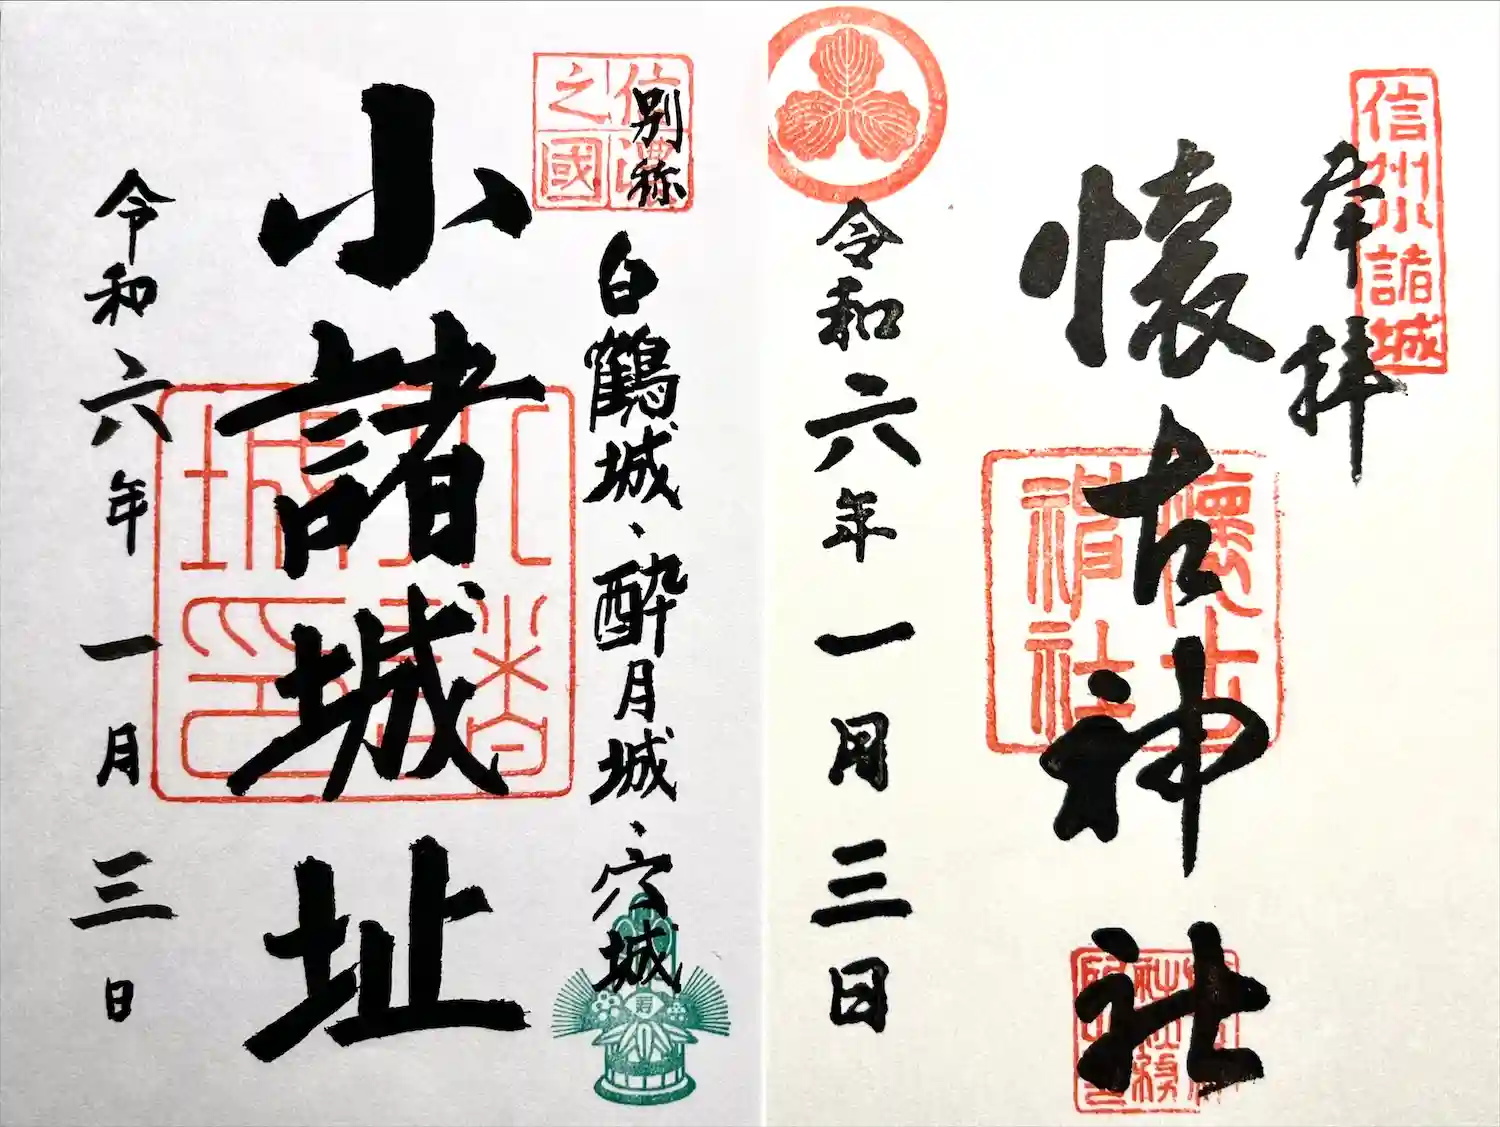 奉拝
信州小諸城
懐古神社
懐古神社
令和六年一月三日
信濃之國
別称
白鶴城、酔月城、穴城
小諸城址
令和六年一月三日
寿